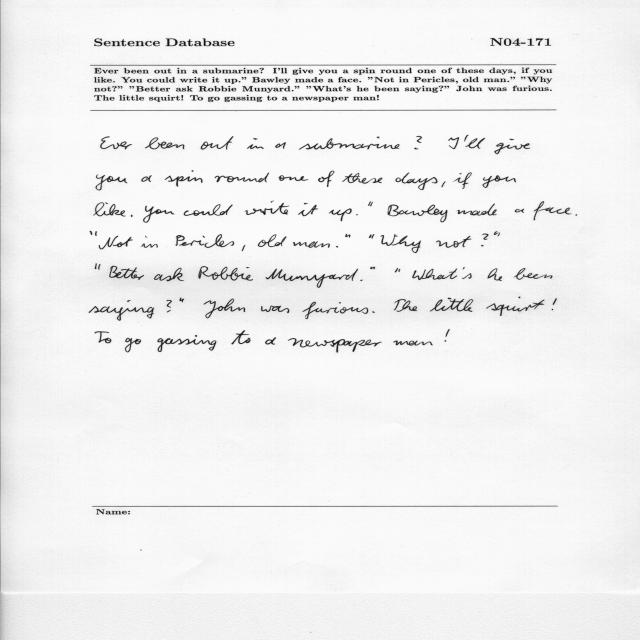 Sentence Database N04-171
Ever been out in a submarine? I'll give you a spin round one of these days, if you
like. You could write it up." Bawley made a face. "Not in Pericles, old man." "Why
not?" "Better ask Robbie Munyard." "What's he been saying?" John was furious.
The little squirt! To go gassing to a newspaper man!
Ever been out in a submarine? I'll give
you a spin round one of these days, if you
like. You could write it up." Bawley made a face.
"Not in Pericles, old man." "Why not?"
"Better ask Robbie Munyard." "What's he been
saying?" John was furious. The little squirt!
To go gassing to a newspaper man!
Name: